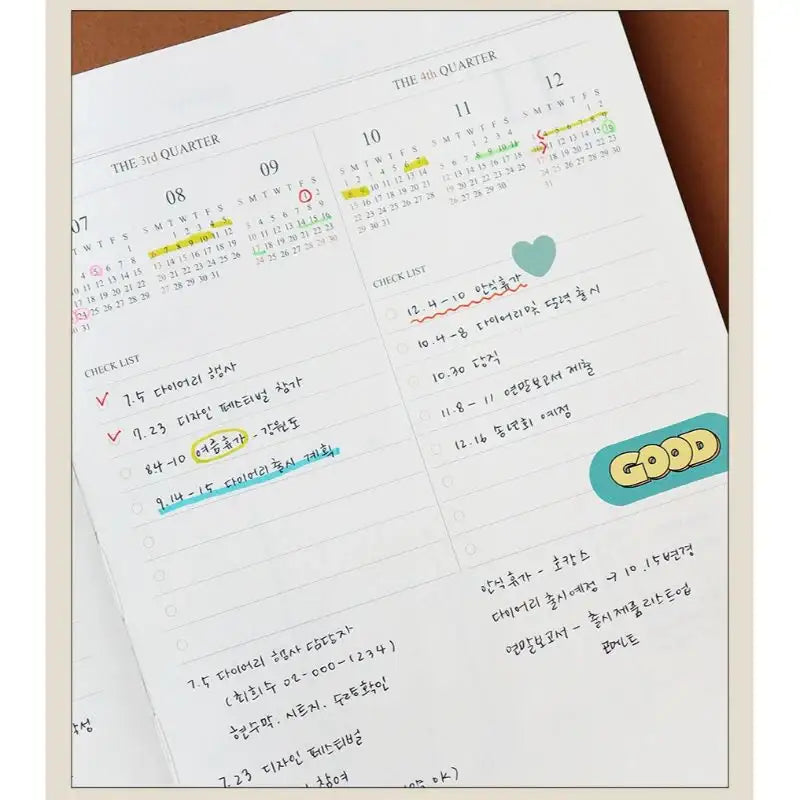 THE 3rd QUARTER
07
T W T F S
1
4 5 6 7 8
10 11 12 13 14 15
17 18 19 20 21 22
24 25 26 27 28 29
31
08
S M T W T F S
1 2 3 4 5
6 7 8 9 10 11 12
13 14 15 16 17 18 19
20 21 22 23 24 25 26
27 28 29 30 31
09
S M T W T F S
1 2
3 4 5 6 7 8 9
10 11 12 13 14 15 16
17 18 19 20 21 22 23
24 25 26 27 28 29 30
CHECK LIST
7.5 다이어리 행사
7.23 디자인 페스티벌 참가
8.4-10 여름휴가 - 강원도
9.14-15 다이어리 출시 계획
7.5 다이어리 행사 담당자
(최희수 02-000-1234)
현수막. 시트지. 수량확인
7.23 디자인 페스티벌
참여
OK)
THE 4th QUARTER
10
S M T W T F S
1 2 3 4 5 6 7
8 9 10 11 12 13 14
15 16 17 18 19 20 21
22 23 24 25 26 27 28
29 30 31
11
S M T W T F S
1 2 3 4
5 6 7 8 9 10 11
12 13 14 15 16 17 18
19 20 21 22 23 24 25
26 27 28 29 30
12
S M T W T F S
1 2
3 4 5 6 7 8 9
10 11 12 13 14 15 16
17 18 19 20 21 22 23
24 25 26 27 28 29 30
31
CHECK LIST
12.4-10 안식휴가
10.4-8 다이어리 및 달력 출시
10.30 당직
11.8-11 연말보고서 제출
12.16 송년회 예정
GOOD
안식휴가 - 호캉스
다이어리 출시예정 → 10.15변경
연말보고서 - 출시제품리스트업
코멘트